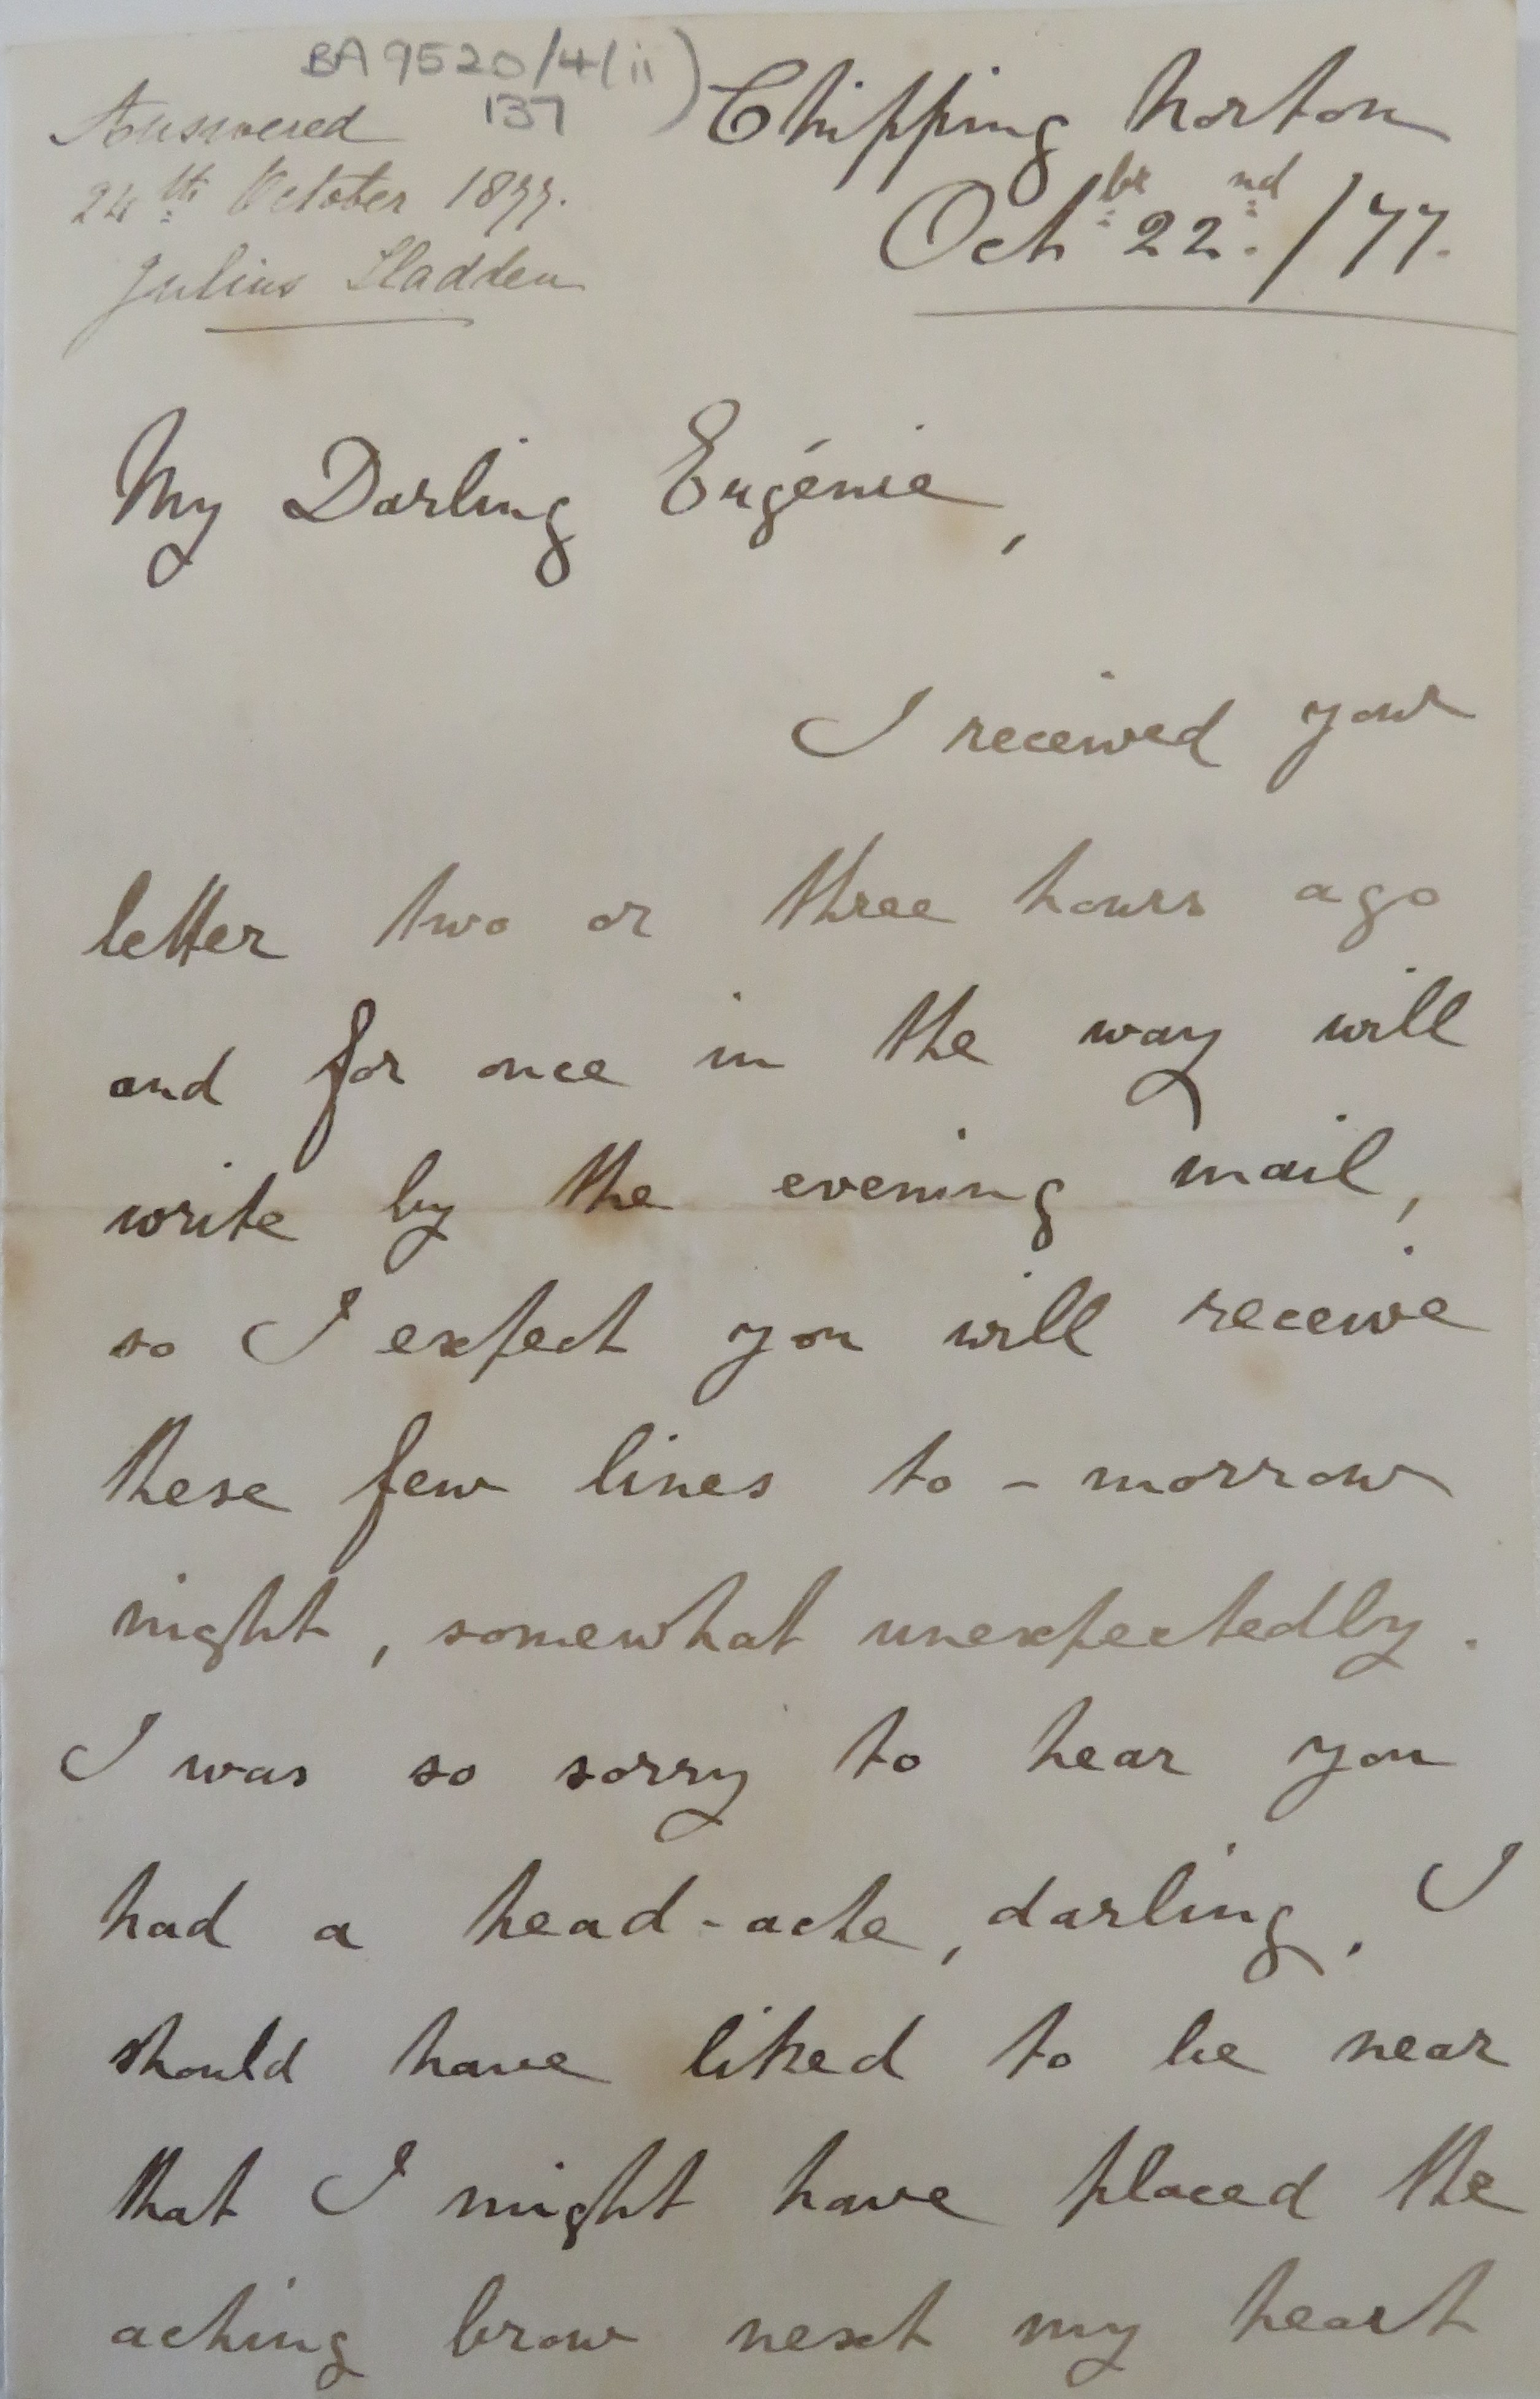 BA 9520/4/(ii)
137
Answered
24th October 1877.
Julius Sladden
Chipping Norton
Octbr 22nd./77.
My Darling Eugénie,
I received your
letter two or three hours ago
and for once in the way will
write by the evening mail,
so I expect you will receive
these few lines to-morrow
night, somewhat unexpectedly.
I was so sorry to hear you
had a head-ache, darling. I
should have liked to be near
that I might have placed the
aching brow next my heart